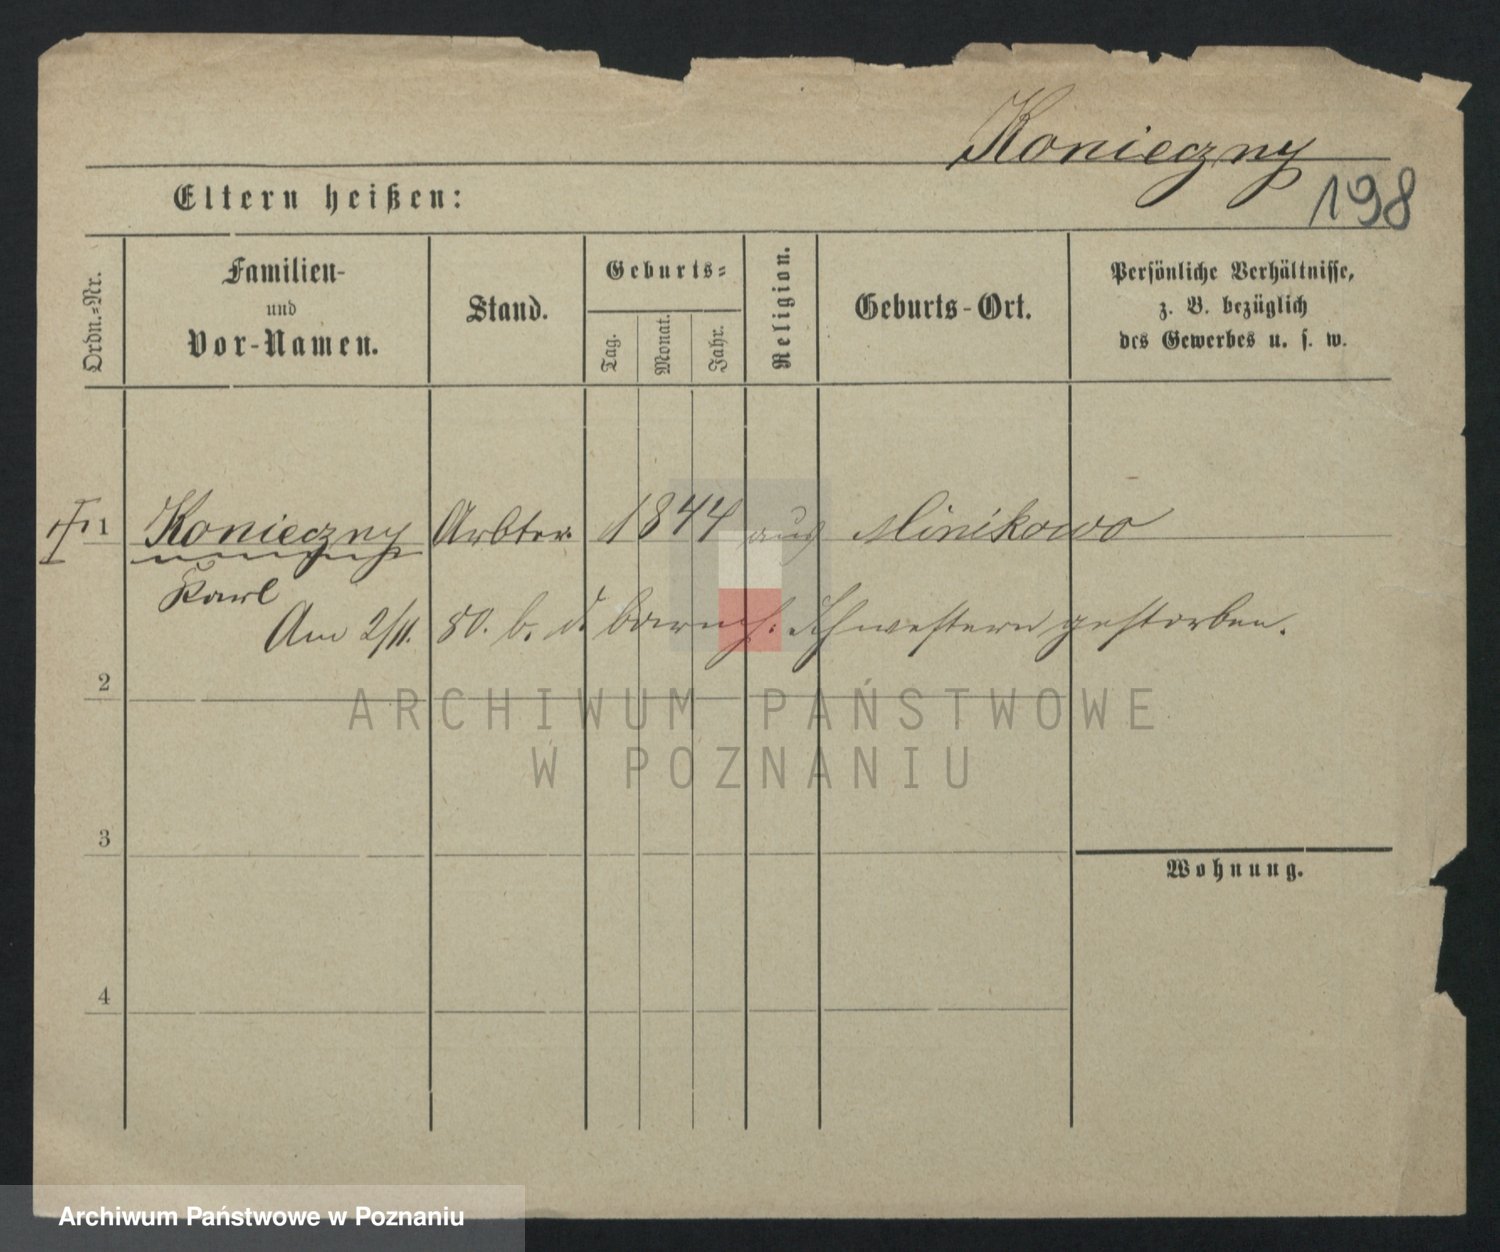 Konieczny
198
Eltern heißen:
Ordn.-Nr.
Familien-
und
Vor-Namen.
Stand.
Geburts-
Tag.
Monat.
Jahr.
Religion.
Geburts-Ort.
Persönliche Verhältnisse,
z. B. bezüglich
des Gewerbes u. s. w.
1 Konieczny Arbter 1844 aus Minikowo
Karl
Am 2/11. 80. b. d. barmh. Schwestern gestorben.
2
ARCHIWUM PAŃSTWOWE
W POZNANIU
3
Wohnung.
4
Archiwum Państwowe w Poznaniu